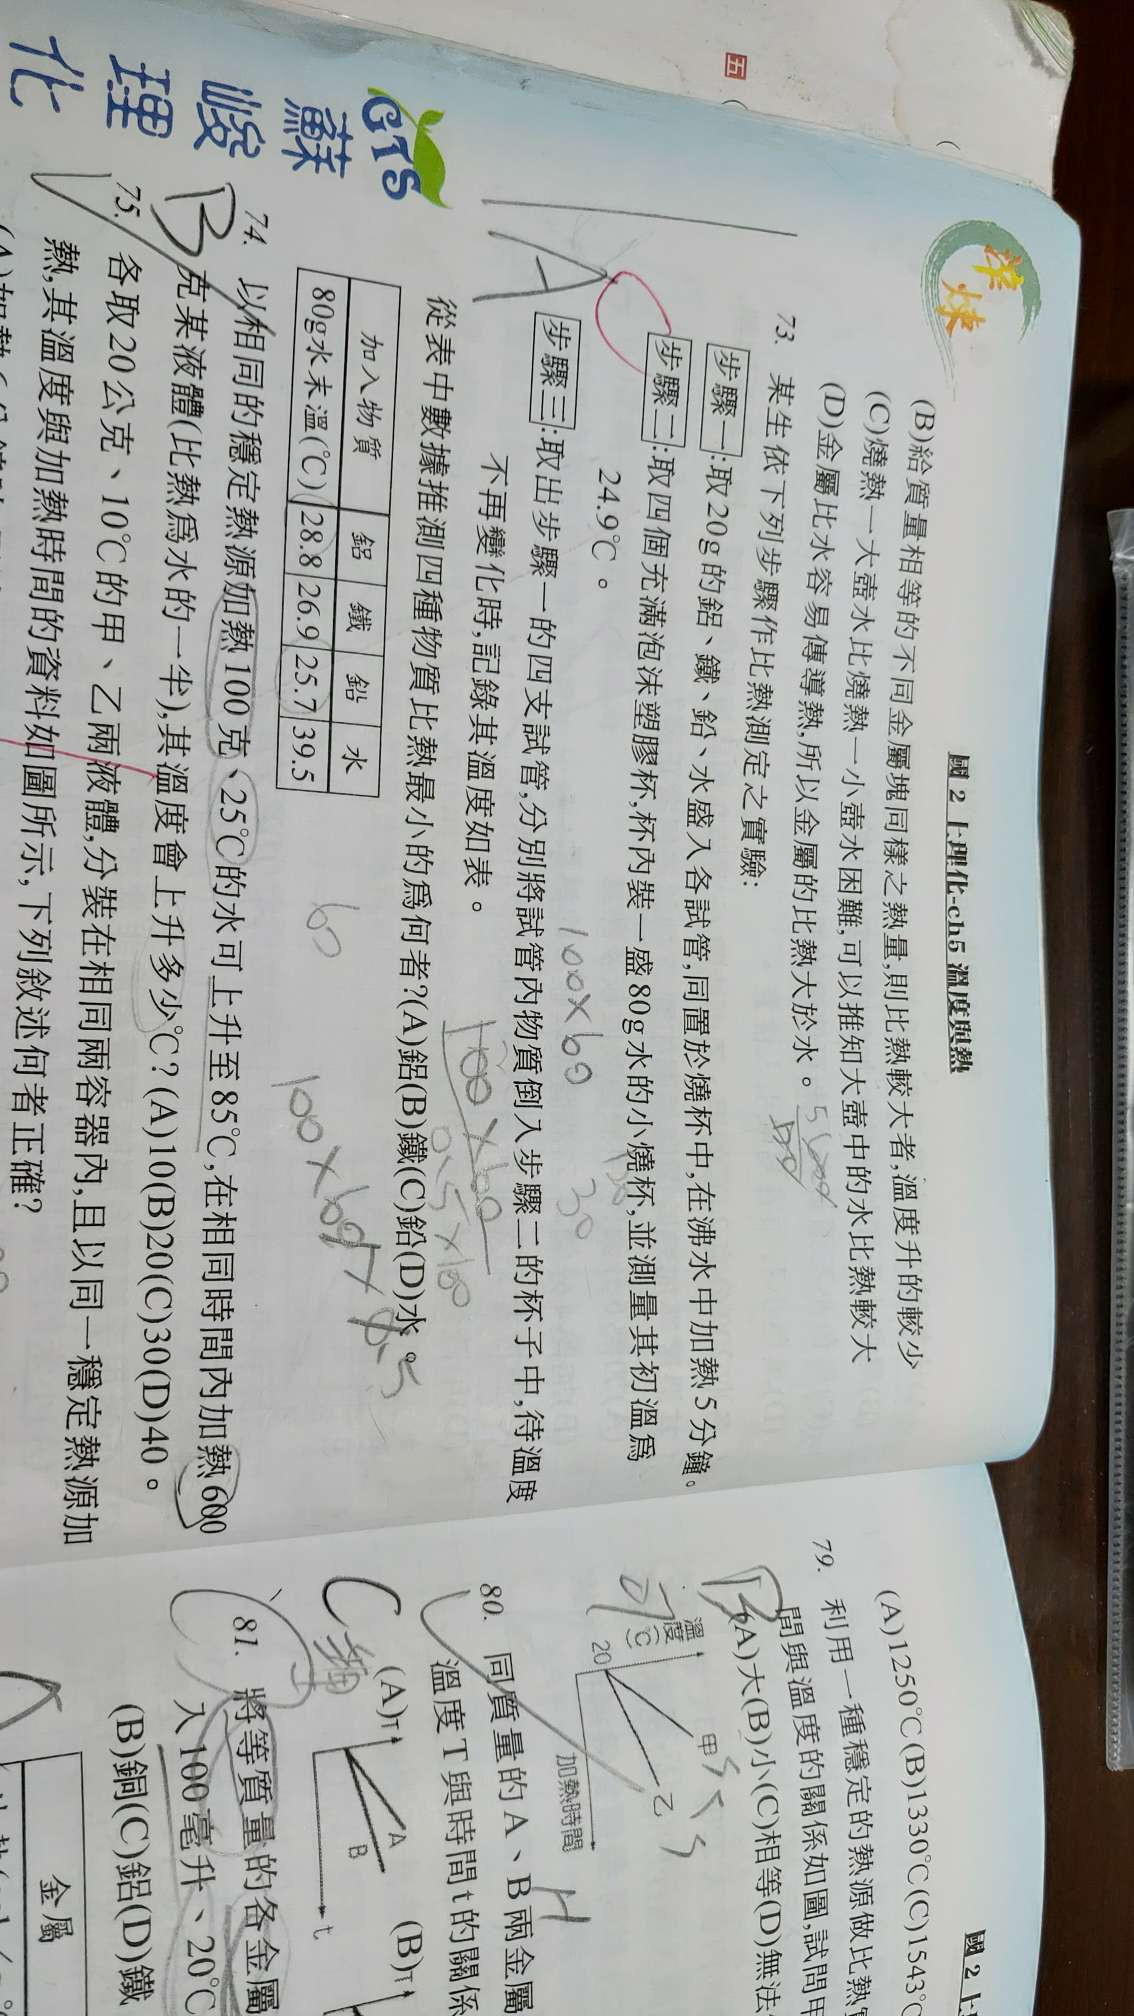 五
GTS
蘇
峻
理
化
洋
煉
國2上理化-ch5 溫度與熱
(B)給質量相等的不同金屬塊同樣之熱量,則比熱較大者,溫度升的較少
(C)燒熱一大壺水比燒熱一小壺水困難,可以推知大壺中的水比熱較大
(D)金屬比水容易傳導熱,所以金屬的比熱大於水。
73. 某生依下列步驟作比熱測定之實驗:
步驟一:取20g的鋁、鐵、鉛、水盛入各試管,同置於燒杯中,在沸水中加熱5分鐘。
步驟二:取四個充滿泡沫塑膠杯,杯內裝一盛80g水的小燒杯,並測量其初溫為
24.9℃。
步驟三:取出步驟一的四支試管,分別將試管內物質倒入步驟二的杯子中,待溫度
不再變化時,記錄其溫度如表。
A
從表中數據推測四種物質比熱最小的為何者?(A)鋁(B)鐵(C)鉛(D)水。
加入物質 鋁 鐵 鉛 水
80g水末溫(℃) 28.8 26.9 25.7 39.5
100×60
30
100×60
0.5×100
60
100×60×0.5
B
74. 以相同的穩定熱源加熱100克、25℃的水可上升至85℃,在相同時間內加熱600
克某液體(比熱為水的一半),其溫度會上升多少℃?(A)10(B)20(C)30(D)40。
75. 各取20公克、10℃的甲、乙兩液體,分裝在相同兩容器內,且以同一穩定熱源加
熱,其溫度與加熱時間的資料如圖所示,下列敘述何者正確?
國2上
(A)1250℃(B)1330℃(C)1543℃
79. 利用一種穩定的熱源做比熱
間與溫度的關係如圖,試問甲
B
(A)大(B)小(C)相等(D)無法
溫度(℃)
20
甲
乙
加熱時間
H
80. 同質量的A、B兩金屬
溫度T與時間t的關係
C
(A)T
A
B
t
(B)T
81. 將等質量的各金屬
入100毫升、20℃
(B)銅(C)鋁(D)鐵
金屬